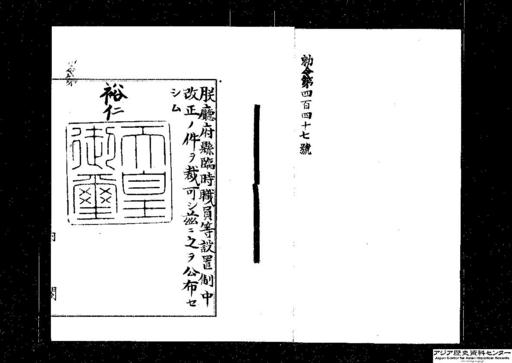 勅令第四百四十七號
朕廳府縣臨時職員等設置制中
改正ノ件ヲ裁可シ茲ニ之ヲ公布セ
シム
裕仁
天皇御璽
内閣
アジア歴史資料センター
Japan Center for Asian Historical Records